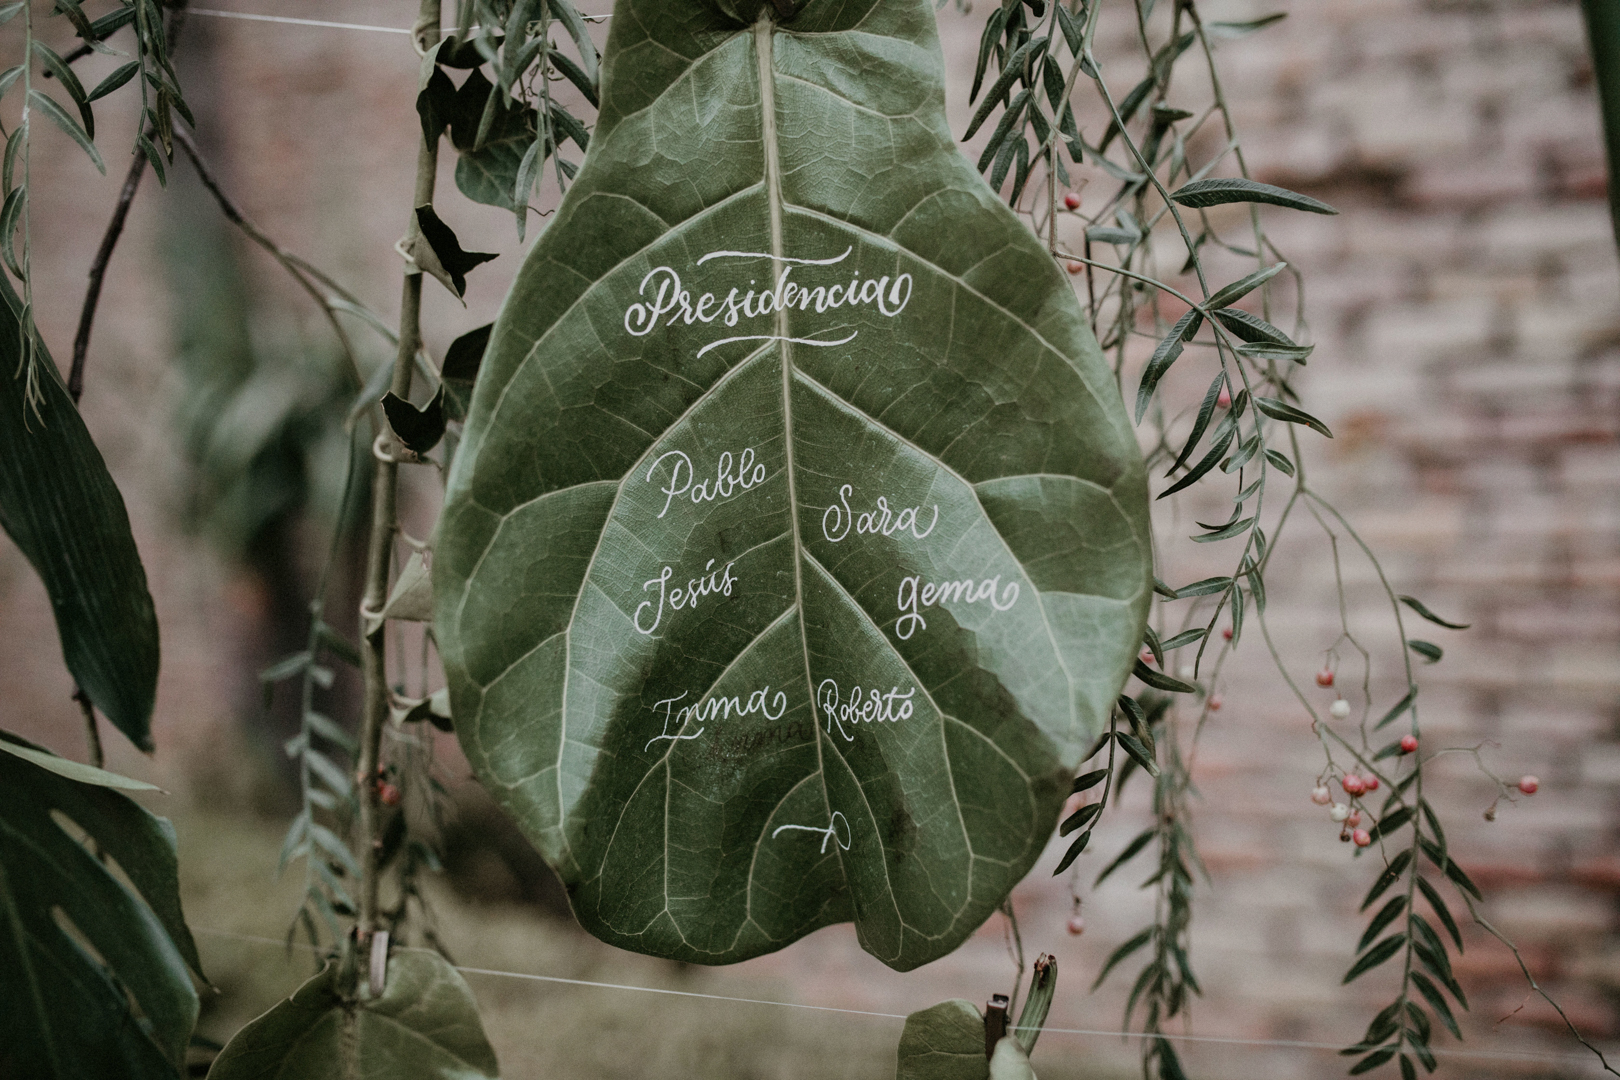 Presidencia
Pablo
Sara
Jesús
gema
Inma
Roberto